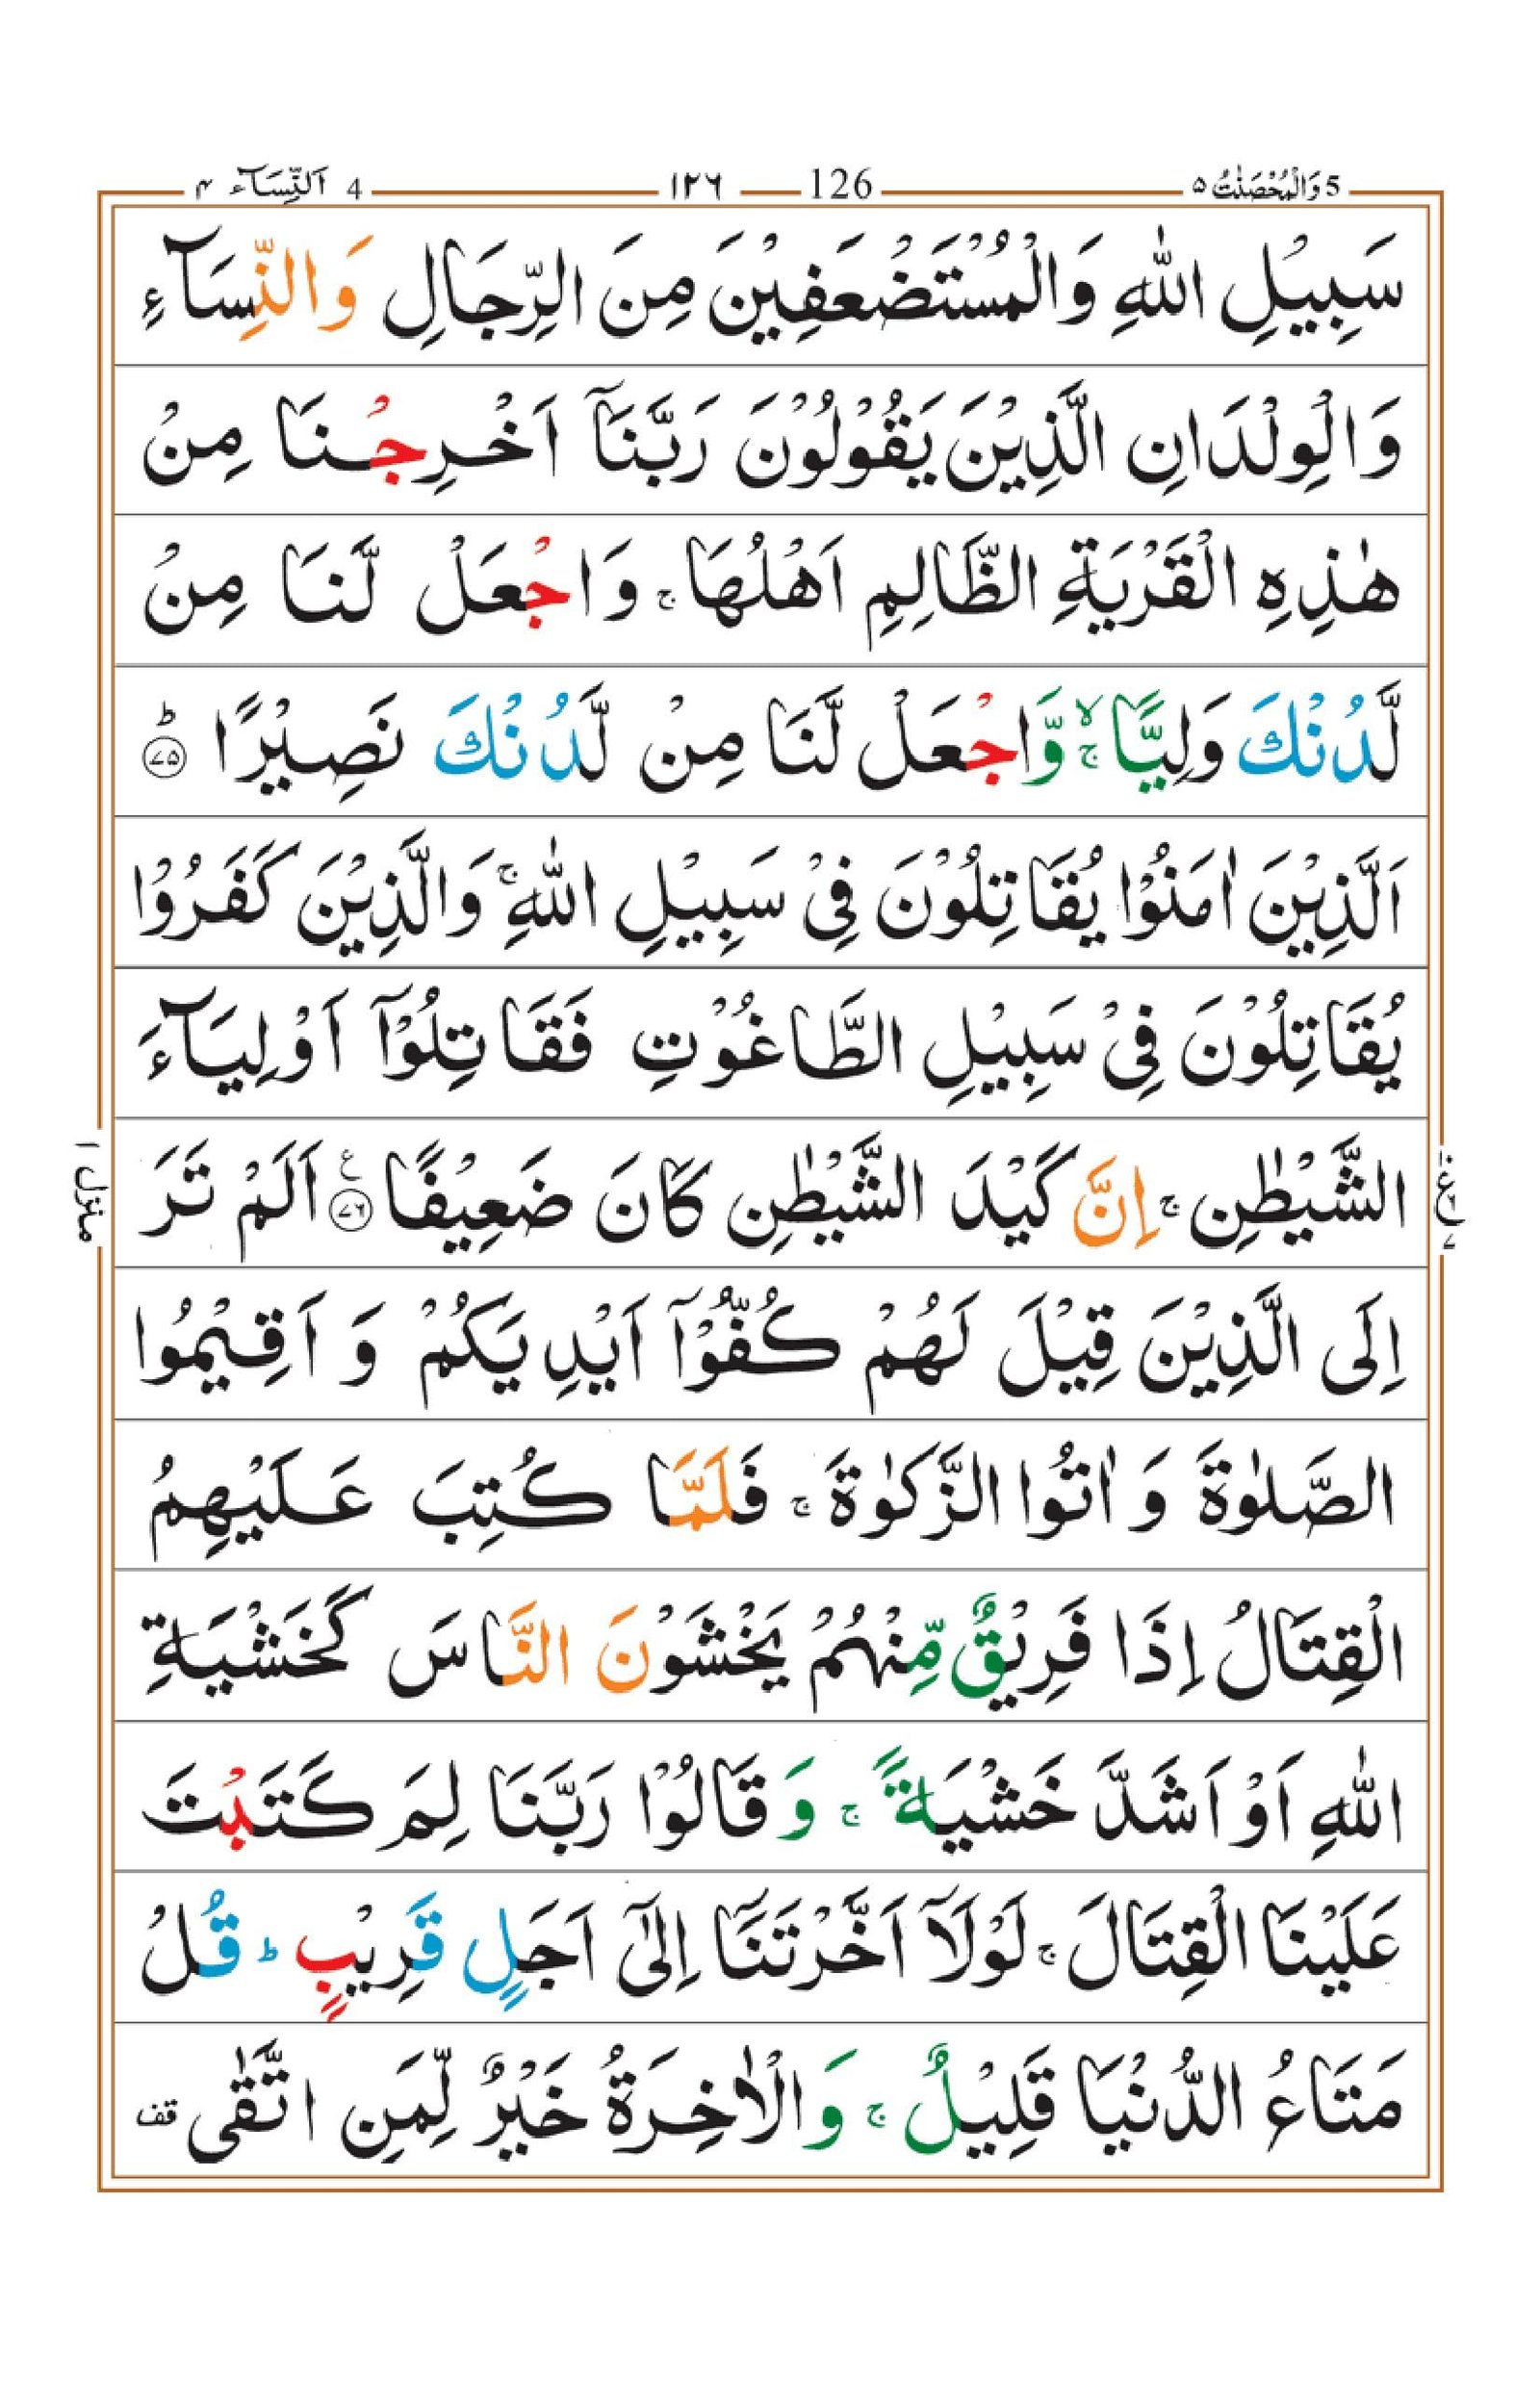 5 وَالْمُحْصَنٰتُ ۵ 126 ۱۲۶ 4 اَلنِّسَآء ۴
سَبِيْلِ اللّٰهِ وَالْمُسْتَضْعَفِيْنَ مِنَ الرِّجَالِ وَالنِّسَآءِ
وَالْوِلْدَانِ الَّذِيْنَ يَقُوْلُوْنَ رَبَّنَاۤ اَخْرِجْنَا مِنْ
هٰذِهِ الْقَرْيَةِ الظَّالِمِ اَهْلُهَا ۚ وَاجْعَلْ لَّنَا مِنْ
لَّدُنْكَ وَلِيًّا ۙۚ وَّاجْعَلْ لَّنَا مِنْ لَّدُنْكَ نَصِيْرًا ؕ ﴿۷۵﴾
اَلَّذِيْنَ اٰمَنُوْا يُقَاتِلُوْنَ فِيْ سَبِيْلِ اللّٰهِ ۚ وَالَّذِيْنَ كَفَرُوْا
يُقَاتِلُوْنَ فِيْ سَبِيْلِ الطَّاغُوْتِ فَقَاتِلُوْۤا اَوْلِيَآءَ
الشَّيْطٰنِ ۚ اِنَّ كَيْدَ الشَّيْطٰنِ كَانَ ضَعِيْفًا ﴿۷۶﴾ ع اَلَمْ تَرَ
اِلَى الَّذِيْنَ قِيْلَ لَهُمْ كُفُّوْۤا اَيْدِيَكُمْ وَ اَقِيْمُوا
الصَّلٰوةَ وَ اٰتُوا الزَّكٰوةَ ۚ فَلَمَّا كُتِبَ عَلَيْهِمُ
الْقِتَالُ اِذَا فَرِيْقٌ مِّنْهُمْ يَخْشَوْنَ النَّاسَ كَخَشْيَةِ
اللّٰهِ اَوْ اَشَدَّ خَشْيَةً ۚ وَ قَالُوْا رَبَّنَا لِمَ كَتَبْتَ
عَلَيْنَا الْقِتَالَ ۚ لَوْلَاۤ اَخَّرْتَنَاۤ اِلٰۤى اَجَلٍ قَرِيْبٍ ؕ قُلْ
مَتَاعُ الدُّنْيَا قَلِيْلٌ ۚ وَالْاٰخِرَةُ خَيْرٌ لِّمَنِ اتَّقٰى قف
منزل ۱